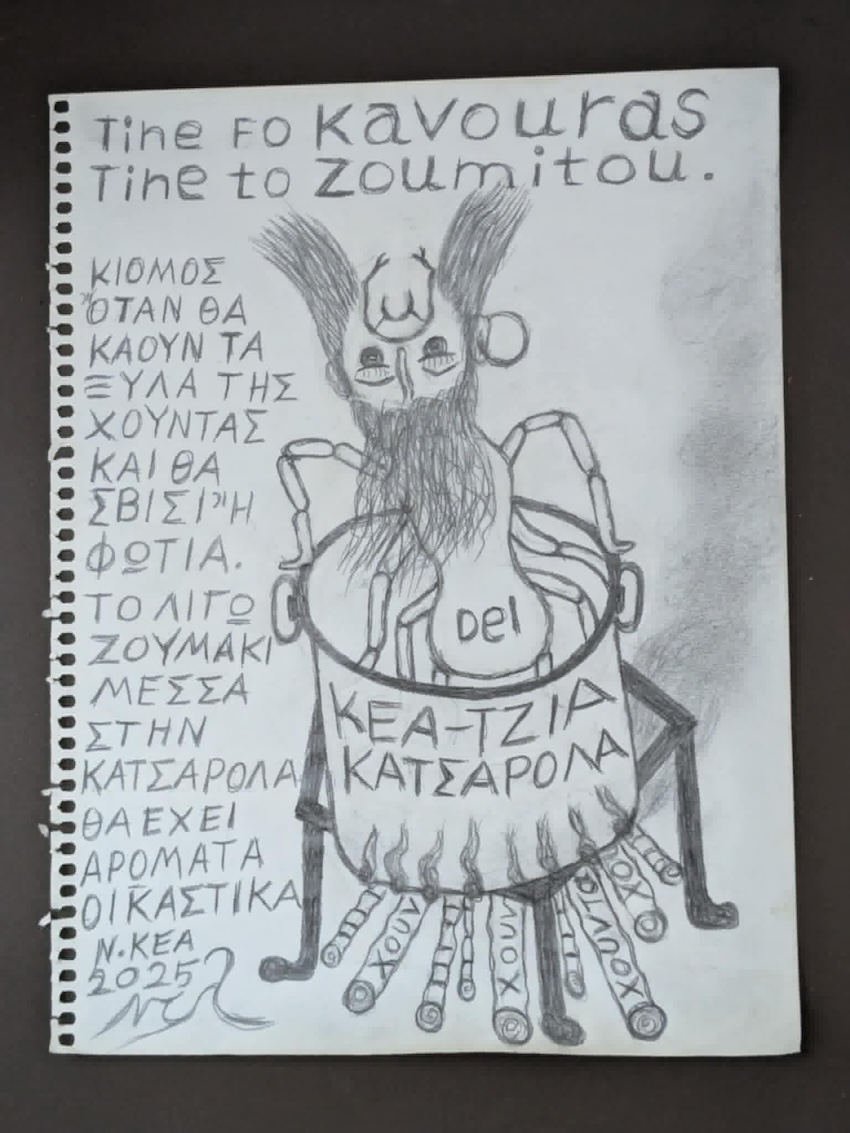 Tine FO Kavouras
Tine to zoumitou.
ΚΙΟΜΟΣ
ΌΤΑΝ ΘΑ
ΚΑΟΥΝ ΤΑ
ΞΥΛΑ ΤΗΣ
ΧΟΥΝΤΑΣ
ΚΑΙ ΘΑ
ΣΒΙΣΙ Ή
ΦΩΤΙΑ.
ΤΟ ΛΙΓΩ
ΖΟΥΜΑΚΙ
ΜΕΣΣΑ
ΣΤΗΝ
ΚΑΤΣΑΡΟΛΑ
ΘΑ ΕΧΕΙ
ΑΡΟΜΑΤΑ
ΟΙΚΑΣΤΙΚΑ
Ν.ΚΕΑ
2025
Del
ΚΕΑ-ΤΖΙΑ
ΚΑΤΣΑΡΟΛΑ
ΧΟΥΝ
ΧΟΥΝ
ΧΟΥΝΤΑ
ΧΟΥ